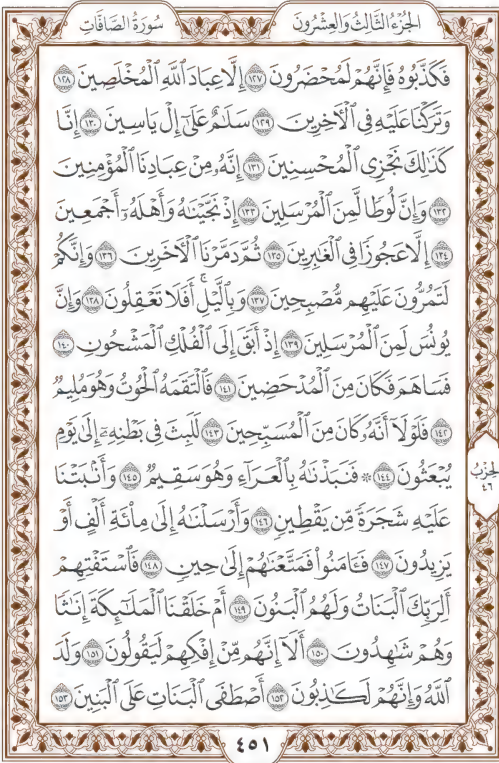 سُورَةُ الصَّافَّاتِ الجُزْءُ الثَّالِثُ وَالعِشْرُونَ
فَكَذَّبُوهُ فَإِنَّهُمْ لَمُحْضَرُونَ ١٢٧ إِلَّا عِبَادَ ٱللَّهِ ٱلْمُخْلَصِينَ ١٢٨
وَتَرَكْنَا عَلَيْهِ فِي ٱلْأٓخِرِينَ ١٢٩ سَلَٰمٌ عَلَىٰٓ إِلْ يَاسِينَ ١٣٠ إِنَّا
كَذَٰلِكَ نَجْزِي ٱلْمُحْسِنِينَ ١٣١ إِنَّهُۥ مِنْ عِبَادِنَا ٱلْمُؤْمِنِينَ
١٣٢ وَإِنَّ لُوطًا لَّمِنَ ٱلْمُرْسَلِينَ ١٣٣ إِذْ نَجَّيْنَٰهُ وَأَهْلَهُۥٓ أَجْمَعِينَ
١٣٤ إِلَّا عَجُوزًا فِي ٱلْغَٰبِرِينَ ١٣٥ ثُمَّ دَمَّرْنَا ٱلْأٓخَرِينَ ١٣٦ وَإِنَّكُمْ
لَتَمُرُّونَ عَلَيْهِم مُّصْبِحِينَ ١٣٧ وَبِٱلَّيْلِۚ أَفَلَا تَعْقِلُونَ ١٣٨ وَإِنَّ
يُونُسَ لَمِنَ ٱلْمُرْسَلِينَ ١٣٩ إِذْ أَبَقَ إِلَى ٱلْفُلْكِ ٱلْمَشْحُونِ ١٤٠
فَسَاهَمَ فَكَانَ مِنَ ٱلْمُدْحَضِينَ ١٤١ فَٱلْتَقَمَهُ ٱلْحُوتُ وَهُوَ مُلِيمٌ
١٤٢ فَلَوْلَآ أَنَّهُۥ كَانَ مِنَ ٱلْمُسَبِّحِينَ ١٤٣ لَلَبِثَ فِي بَطْنِهِۦٓ إِلَىٰ يَوْمِ
يُبْعَثُونَ ١٤٤ ۞ فَنَبَذْنَٰهُ بِٱلْعَرَآءِ وَهُوَ سَقِيمٌ ١٤٥ وَأَنۢبَتْنَا
عَلَيْهِ شَجَرَةً مِّن يَقْطِينٍ ١٤٦ وَأَرْسَلْنَٰهُ إِلَىٰ مِا۟ئَةِ أَلْفٍ أَوْ
يَزِيدُونَ ١٤٧ فَـَٔامَنُوا۟ فَمَتَّعْنَٰهُمْ إِلَىٰ حِينٍ ١٤٨ فَٱسْتَفْتِهِمْ
أَلِرَبِّكَ ٱلْبَنَاتُ وَلَهُمُ ٱلْبَنُونَ ١٤٩ أَمْ خَلَقْنَا ٱلْمَلَٰٓئِكَةَ إِنَٰثًا
وَهُمْ شَٰهِدُونَ ١٥٠ أَلَآ إِنَّهُم مِّنْ إِفْكِهِمْ لَيَقُولُونَ ١٥١ وَلَدَ
ٱللَّهُ وَإِنَّهُمْ لَكَٰذِبُونَ ١٥٢ أَصْطَفَى ٱلْبَنَاتِ عَلَى ٱلْبَنِينَ ١٥٣
الحِزْبُ
٤٦
٤٥١